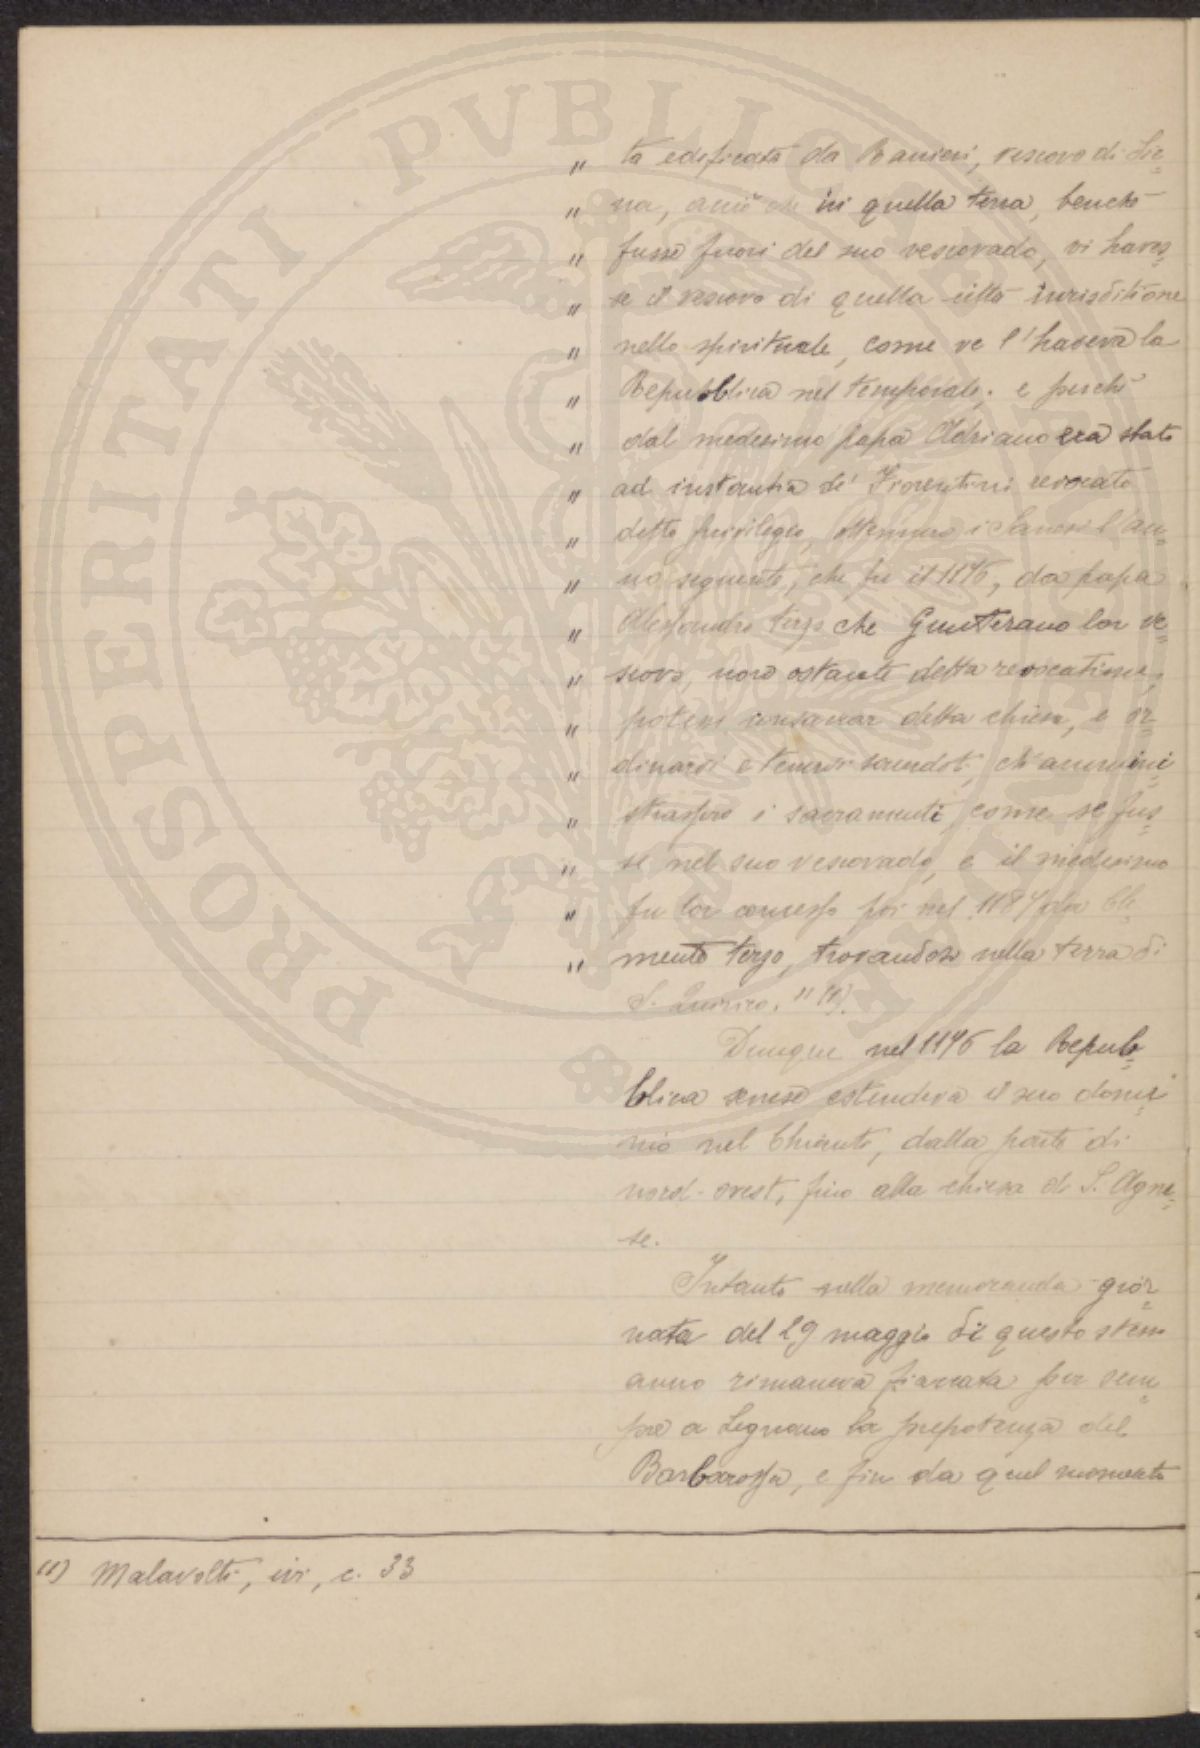 PROSPERITATI PVBLICAE AVGENDAE
" ta edificata da Ranieri, vescovo di Sie=
" na, acciò che in quella terra, benchè
" fusse fuori del suo vescovado, vi haves=
" se il vescovo di quella città iurisditione
" nello spirituale, come ve l'haveva la
" Repubblica nel temporale; e perchè
" dal medesimo papa Adriano era stato
" ad instantia de' Fiorentini revocato
" detto privilegio, ottennero i Sanesi l'an=
" no seguente, che fu il 1176, da papa
" Alessandro terzo che Gunterano lor ve=
" scovo, non ostante detta revocatione,
" potesse consacrar detta chiesa, e or=
" dinarvi e tenervi sacerdoti, che ammini=
" strassero i sacramenti, come se fus=
" se nel suo vescovado, e il medesimo
" fu lor concesso poi nel 1187 da Cle=
" mente terzo, trovandosi nella terra di
S. Quirico." (1).
Dunque nel 1176 la Repub=
blica senese estendeva il suo domi=
nio nel Chianti, dalla parte di
nord-ovest, fino alla chiesa di S. Agne=
se.
Intanto nella memoranda gior=
nata del 29 maggio di questo stesso
anno rimaneva fiaccata per sem=
pre a Legnano la prepotenza del
Barbarossa, e fin da quel momento
(1) Malavolti, ivi, c. 33